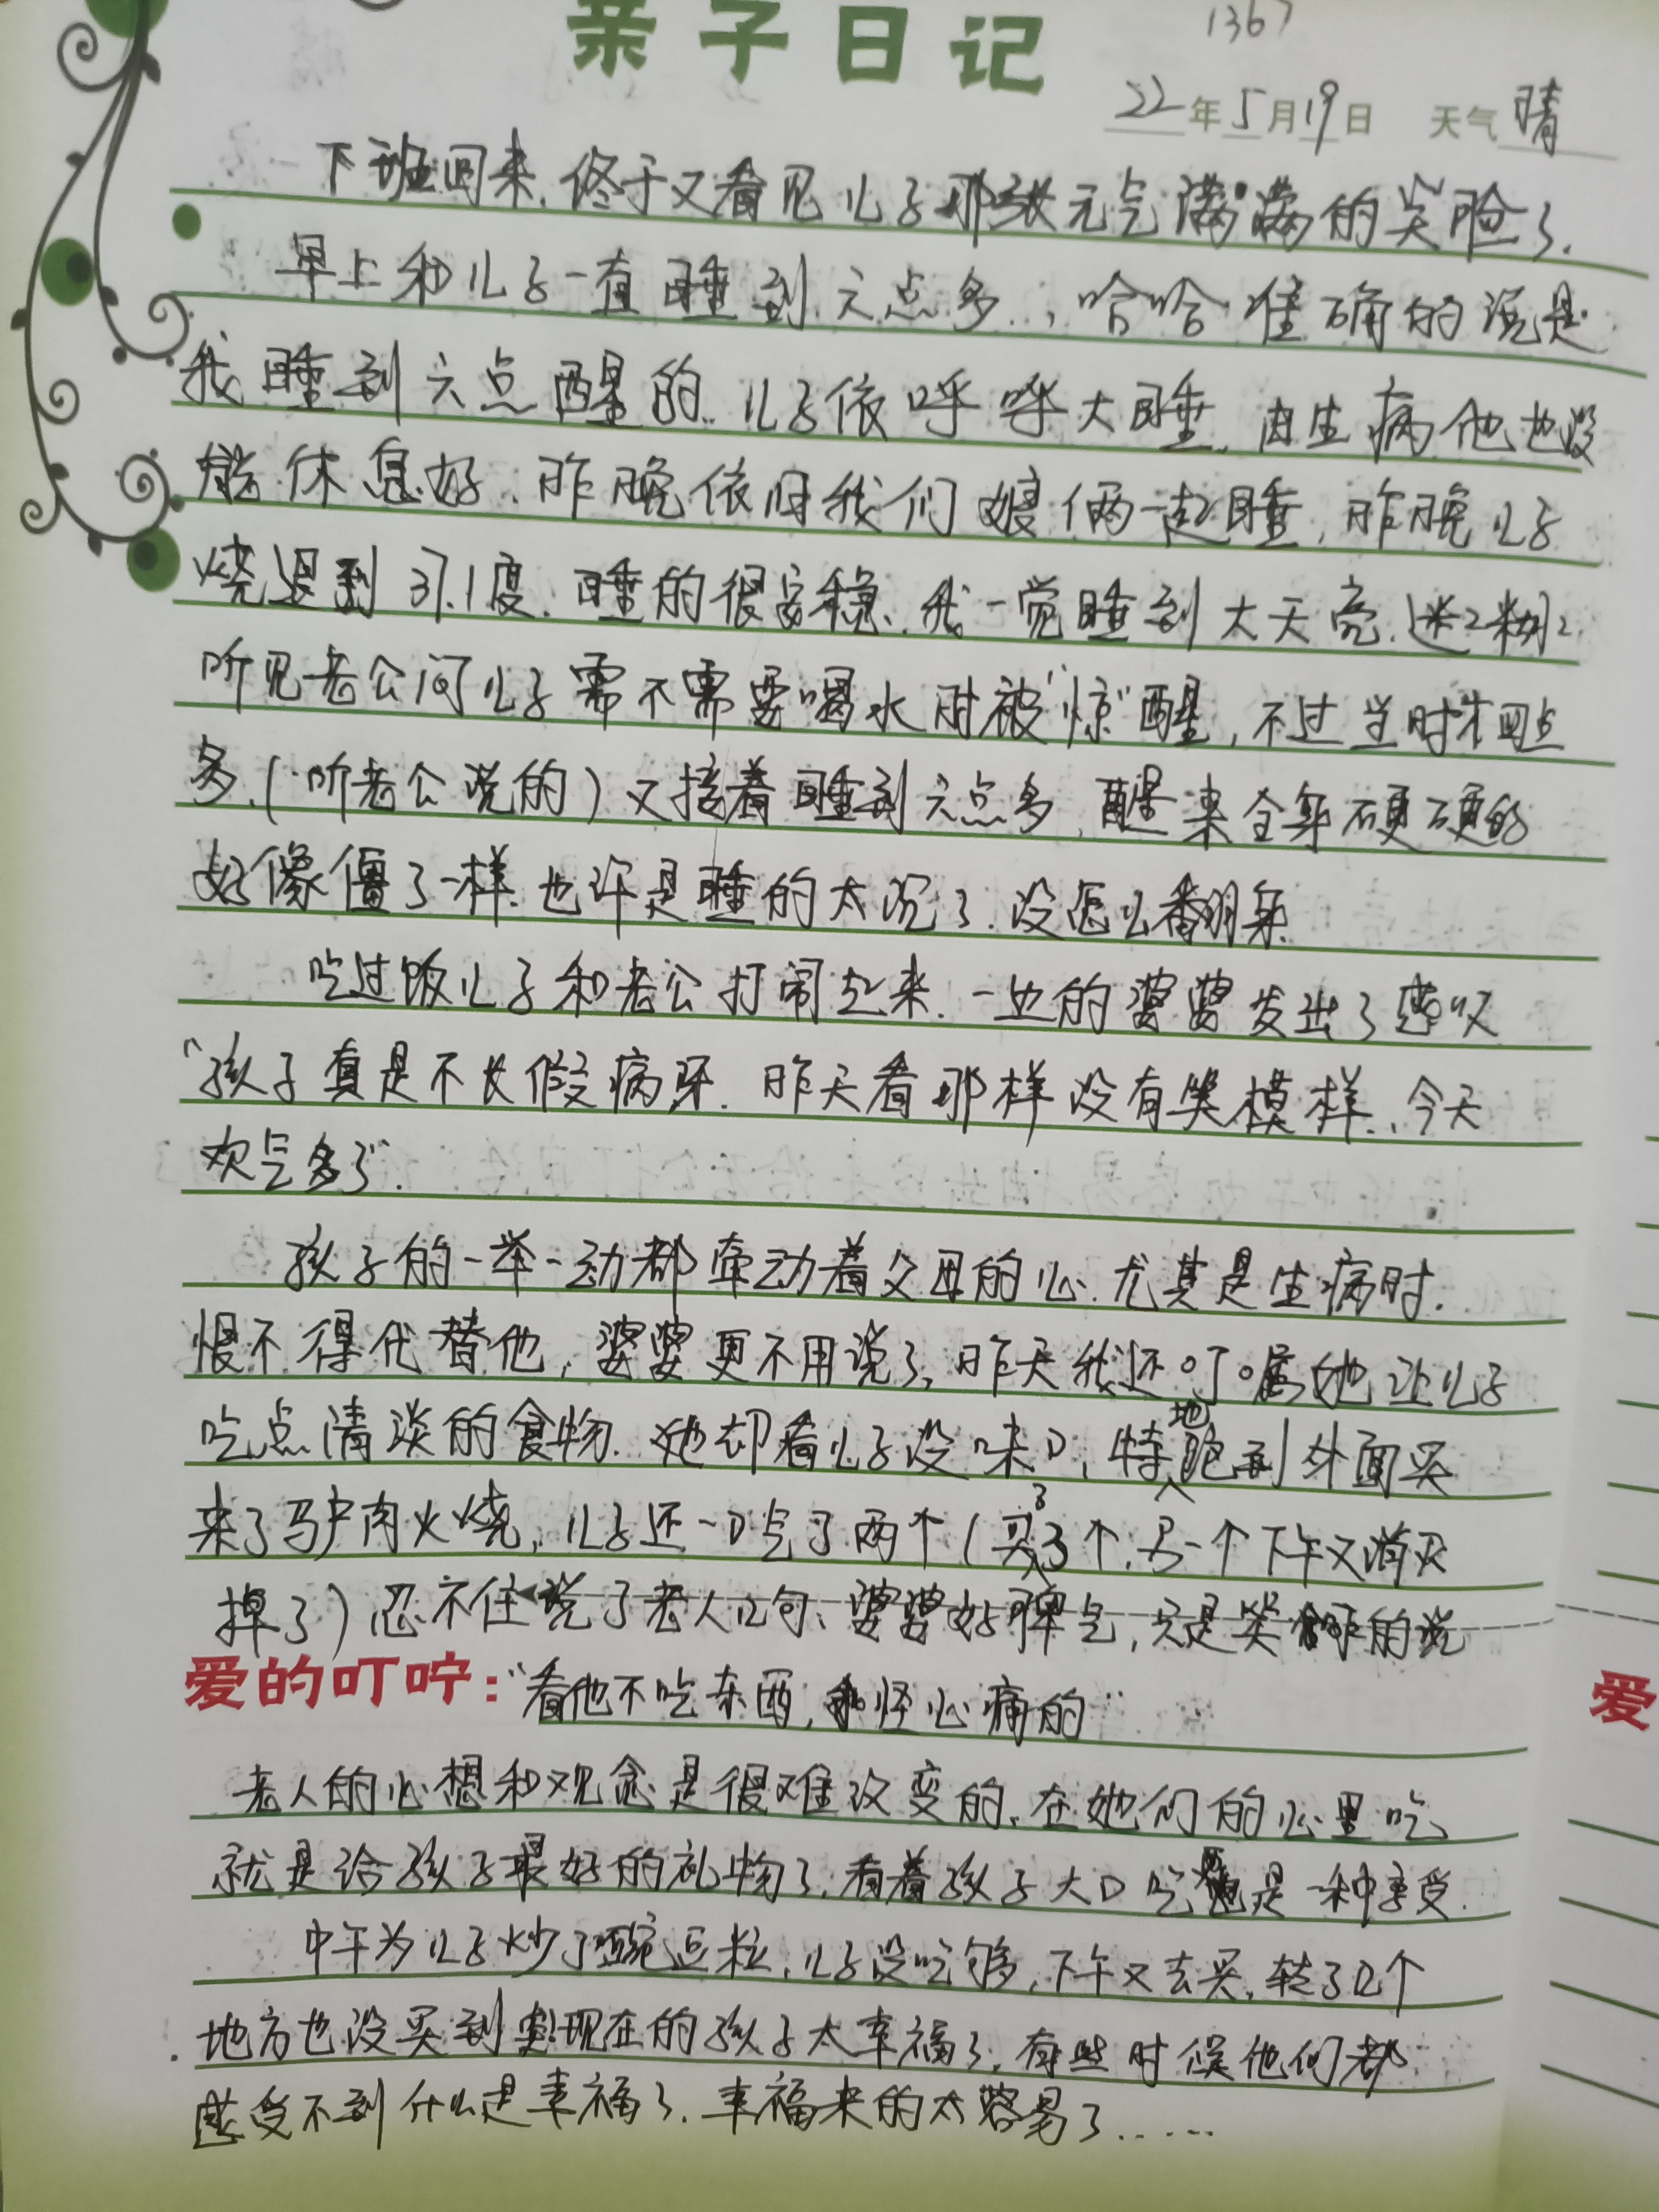 亲子日记
1367
22年5月19日 天气晴
下班回来,终于又看见儿子那张元气满满的笑脸了.
早上和儿子一直睡到六点多,哈哈准确的说是
我睡到六点醒的.儿子依呼呼大睡,由生病他也没
能休息好.昨晚依旧我们娘俩一起睡,昨晚儿子
烧退到37.1度.睡的很安稳.我一觉睡到大天亮.迷2糊2
听见老公问儿子需不需要喝水时被"惊"醒,不过当时才四点
多.(听老公说的)又接着睡到六点多,醒来全身硬硬的
好像僵了一样.也许是睡的太沉了.没怎么翻身
吃过饭儿子和老公打闹起来.一边的婆婆发出了感叹
"孩子真是不长假病呀.昨天看那样没有笑模样.今天
欢气多了".
孩子的一举一动都牵动着父母的心.尤其是生病时.
恨不得代替他,婆婆更不用说了,昨天我还叮嘱她让儿子
吃点清淡的食物.她却看儿子没味口,特地跑到外面买
来了驴肉火烧,儿子还一口气了两个(买了3个.另一个下午又消灭
掉了)忍不住说了老人几句、婆婆好脾气,只是笑的说
爱的叮咛:"看他不吃东西,我怪心痛的"
老人的心想和观念是很难改变的.在她们的心里吃
就是给孩子最好的礼物了.看着孩子大口吃也是一种享受.
中午为儿子炒了豌豆粒,儿子没吃够,下午又去买,转了几个
地方也没买到 现在的孩子太幸福了,有些时候他们都
感受不到什么是幸福了.幸福来的太容易了......
爱